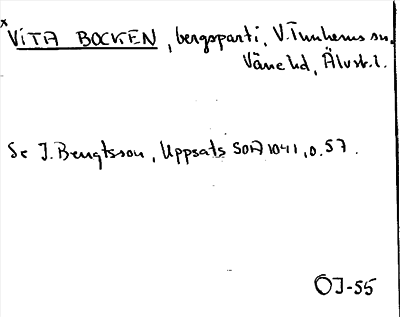 x
VITA BOCKEN, bergsparti, V. Tunhems sn.
Väne hd, Älvsb. l.
Se J. Bengtsson, Uppsats SOA 1041, s. 57.
OJ-55